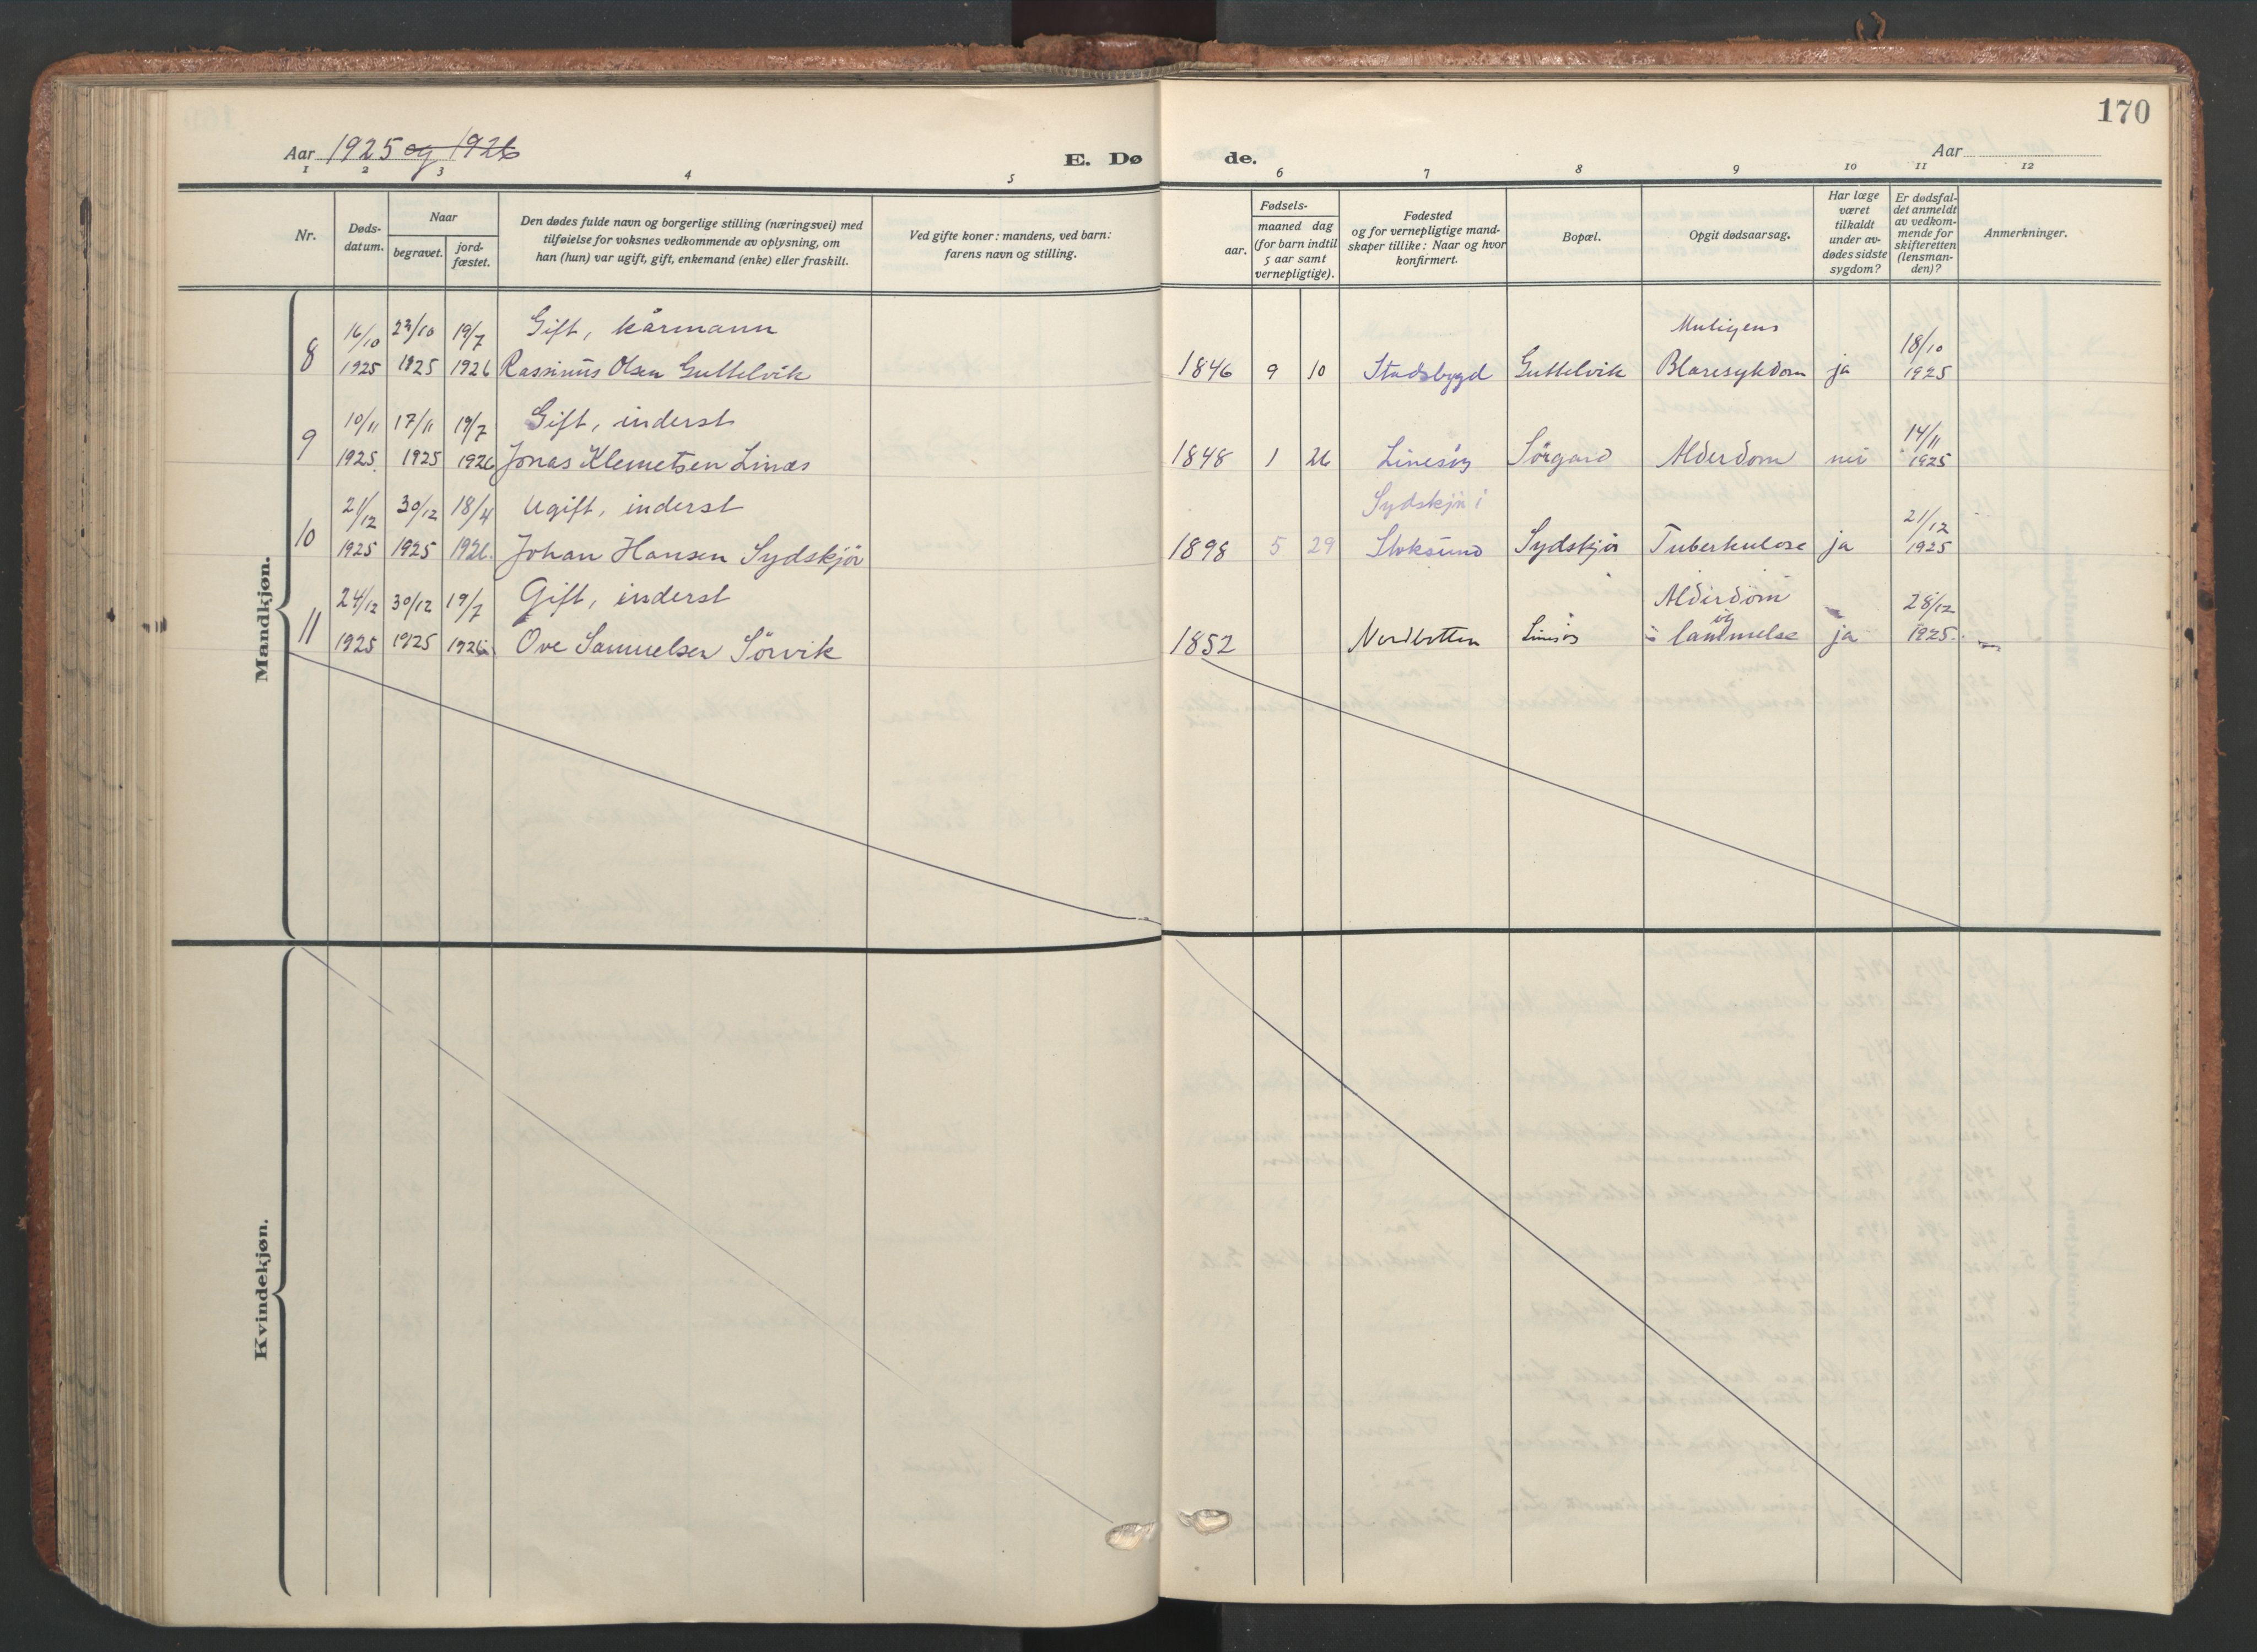 170
Aar 1925 og 1926
E. Dø de.
Aar
1 2 3 4 5 6 7 8 9 10 11 12
Nr.
Døds-
datum.
Naar
begravet.
jord-
fæstet.
Den dødes fulde navn og borgerlige stilling (næringsvei) med
tilføielse for voksnes vedkommende av oplysning, om
han (hun) var ugift, gift, enkemand (enke) eller fraskilt.
Ved gifte koner: mandens, ved barn:
farens navn og stilling.
Fødsels-
aar.
maaned dag
(for barn indtil
5 aar samt
vernepligtige).
Fødested
og for vernepligtige mand-
skaper tillike: Naar og hvor
konfirmert.
Bopæl.
Opgit dødsaarsag.
Har læge
været
tilkaldt
under av-
dødes sidste
sygdom?
Er dødsfal-
det anmeldt
av vedkom-
mende for
skifteretten
(lensman-
den)?
Anmerkninger.
Mandkjøn.
16/10 23/10 19/7 Gift, kårmann Muligens 18/10
8 1925 1925 1926 Rasmus Olsen Guttelvik 1846 9 10 Stadsbygd Guttelvik Blæresykdom ja 1925
10/11 17/11 19/7 Gift, inderst 14/11
9 1925. 1925 1926 Jonas Klemetsen Linæs 1848 1 26 Linesöy Sörgard Alderdom nei 1925
21/12 30/12 18/4 Ugift, inderst Sydskjör i 21/12
10 1925 1925 1926. Johan Hansen Sydskjör 1898 5 29 Stoksund Sydskjör Tuberkulose ja 1925
24/12 30/12 19/7 Gift, inderst Alderdom 28/12
11 1925 1925 1926 Ove Samuelsen Sörvik 1852 Nordbotten Linesöy og lammelse ja 1925.
Kvindekjøn.